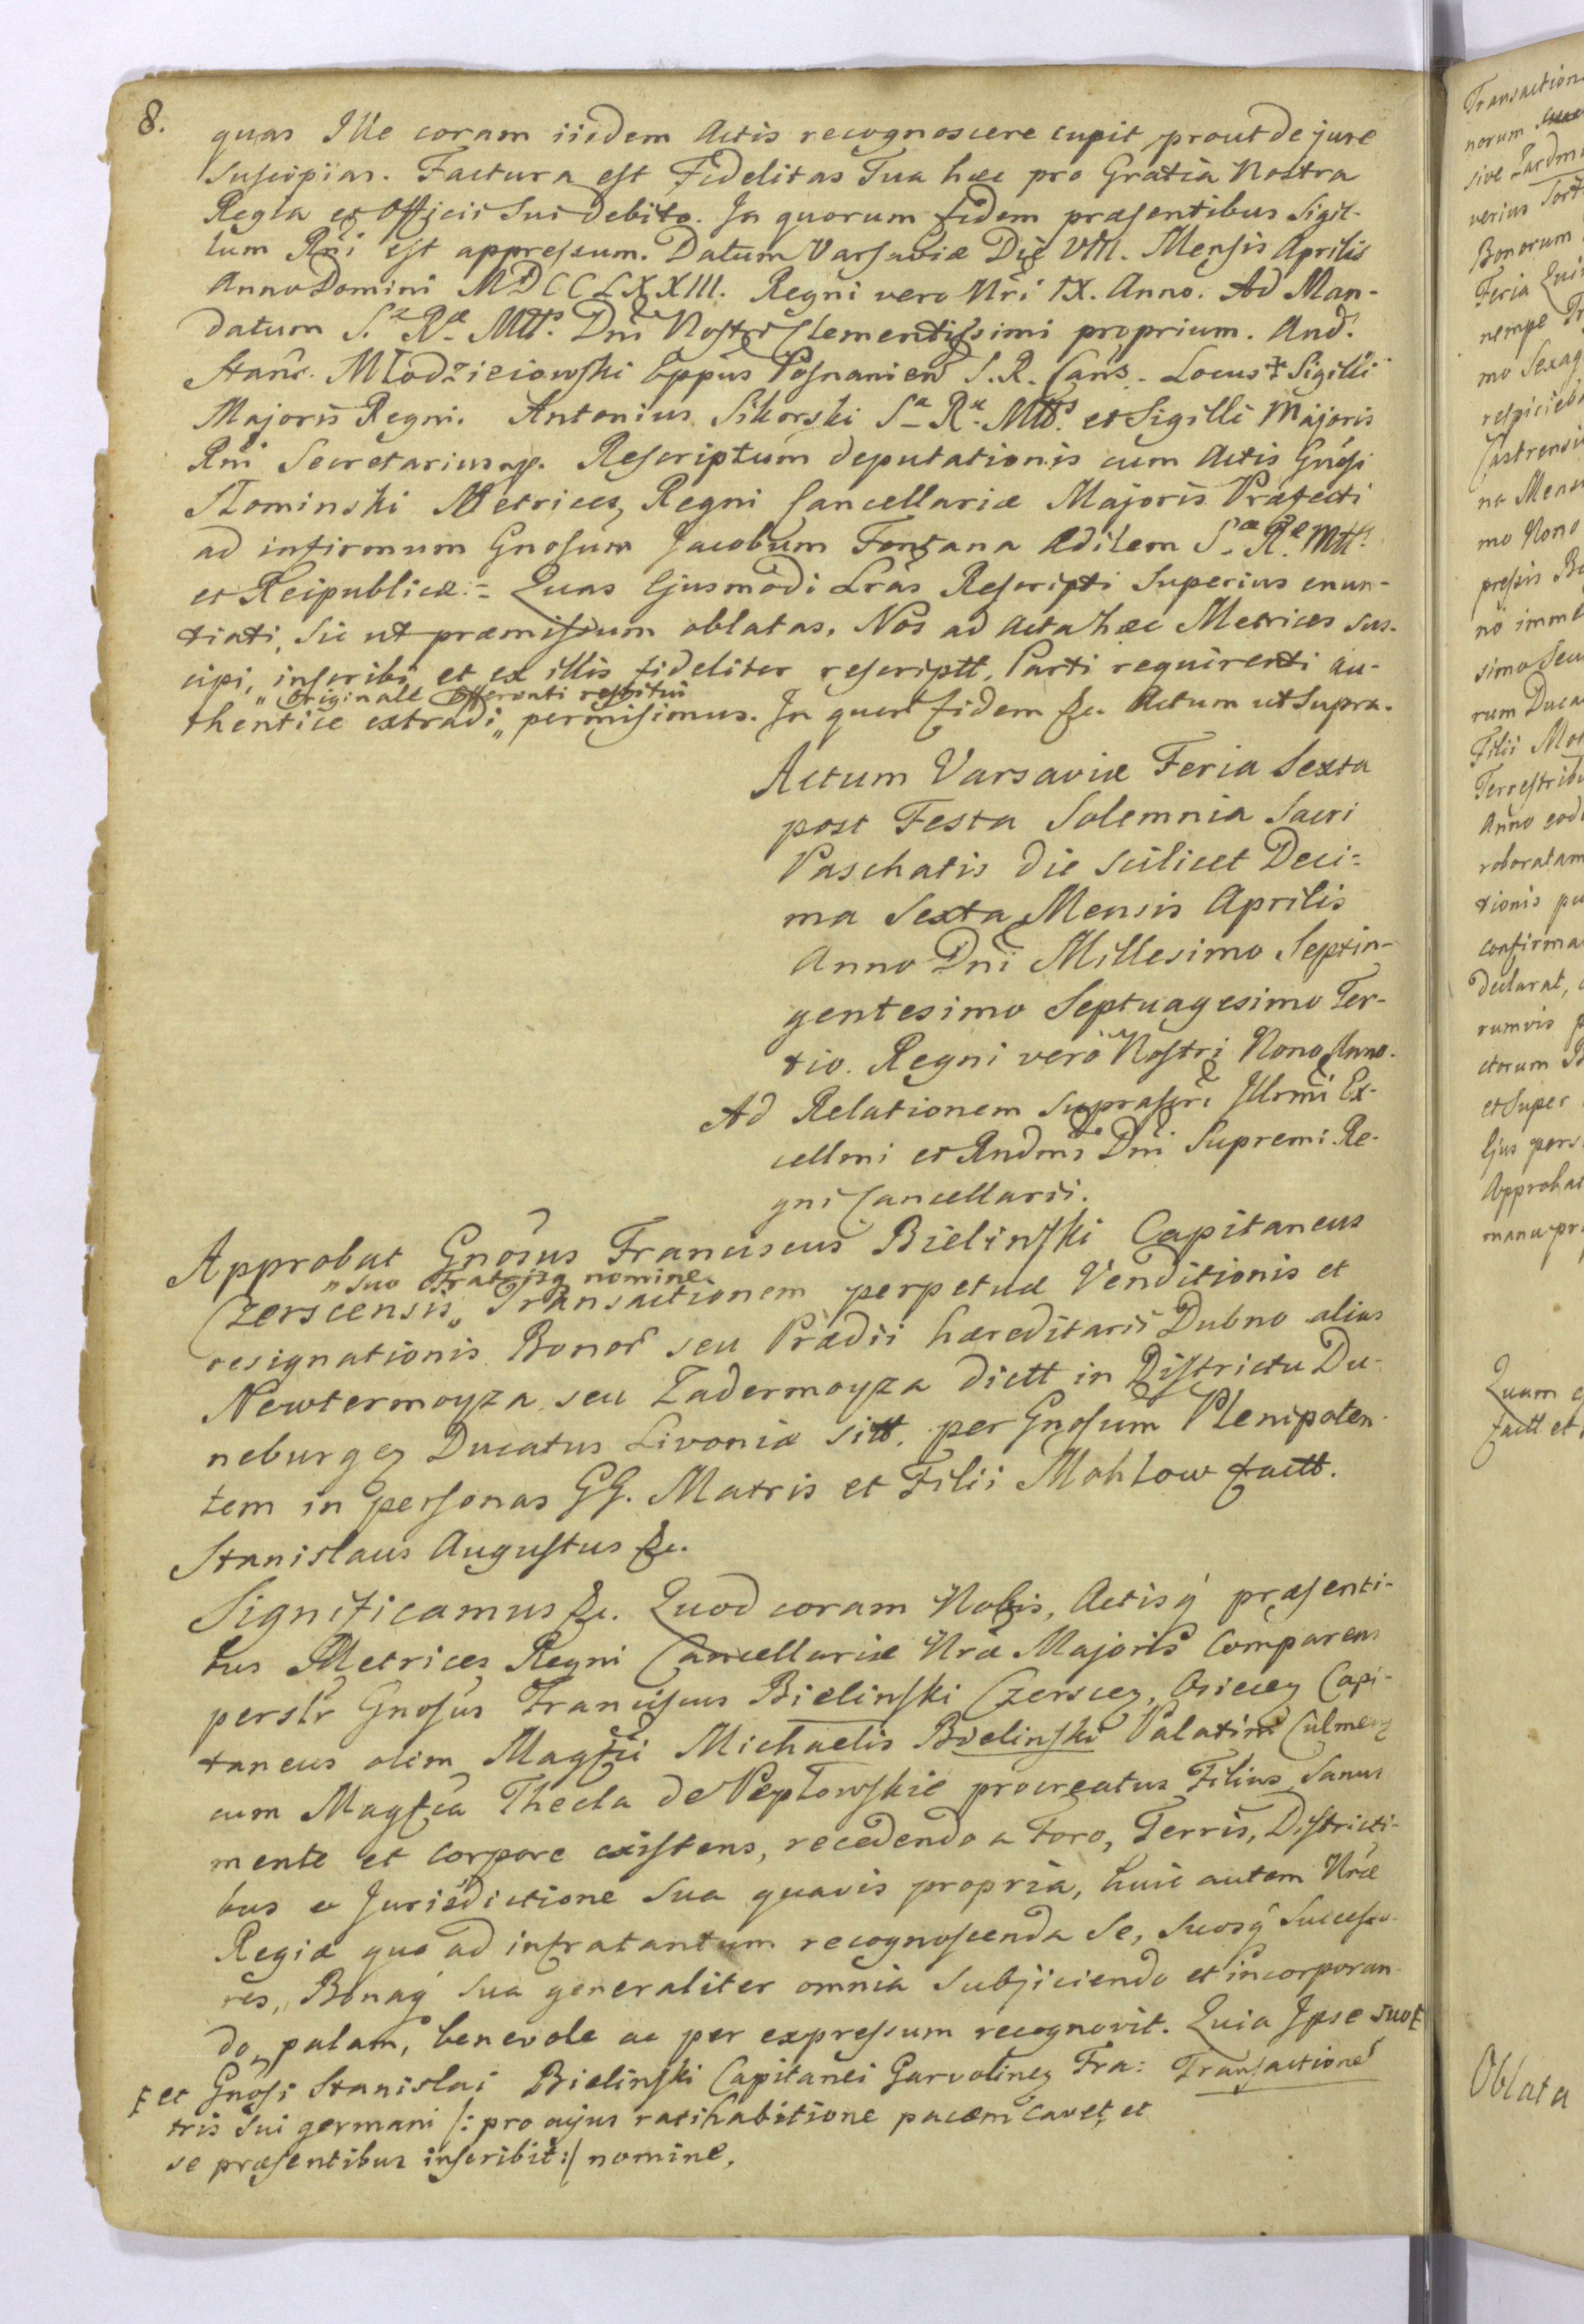 8.
quas Ille coram iisdem Actis recognoscere cupit, prout de jure
suscipias. Factura est Fidelitas Tua hæc pro Gratia Nostra
Regia et Officii Sui debito. In quorum fidem præsentibus Sigil-
lum Rni est appressum. Datum Varsaviæ Die VIII. Mensis Aprilis
Anno Domini MDCCLXXIII. Regni vero Nri IX. Anno. Ad Man-
datum S.æ Ræ Mttis Dni Nostri Clementissimi proprium. And.
Stanis. Młodzieiowski Eppus Posnanien S. R. Cans. Locus Sigilli
Majoris Regni. Antonius Sikorski Sæ Ræ Mttis et Sigilli Majoris
Rni Secretarius mp. Rescriptum deputationis cum Actis Gnosi
Słominski Metrices Regni Cancellariæ Majoris Præfecti
ad infirmum Gnosum Jacobum Fontana Ædilem Sæ Ræ Mttis
et Reipublicæ. = Quas Ejusmodi Lras Rescripti superius enun-
tiati, sic ut præmissum oblatas, Nos ad Acta hæc Metrices sus-
cipi, inscribi et ex illis fideliter rescriptt, Parti requirenti au-
" Originale Offerenti restitui
thentice extradi „ permisimus. In quor fidem &c. Actum ut Supra.
Actum Varsaviæ Feria Sexta
post Festa Solemnia Sacri
Paschatis die scilicet Deci=
ma Sexta Mensis Aprilis
Anno Dni Millesimo Septin-
gentesimo Septuagesimo Ter-
tio. Regni vero Nostri Nono Anno.
Ad Relationem suprascri Illrmi Ex-
cellmi et Rndmi Dni Supremi Re-
gni Cancellarii.
Approbat Gnosus Franciscus Bielinski Capitaneus
" suo Fratrisq nomine
Czerscensis „ Transactionem perpetuæ Venditionis et
resignationis Bonor seu Prædii hæreditarii Dubno alias
Newtermoyza seu Zadermoyza dictt in Districtu Du-
neburgen Ducatus Livoniæ sitt. per Gnosum Plenipoten-
tem in personas GG. Matris et Filii Mohlow factt.
Stanislaus Augustus &c.
Significamus &c. Quod coram Nobis, Actisq præsenti-
bus Metrices Regni Cancellariæ Nræ Majoris Comparens
personr Gnosus Franciscus Bielinski Czerscen, Osiecen Capi-
taneus olim Magfci Michaelis Bielinski Palatini Culmen
cum Magfca Thecla de Pepłowskie procreatus Filius, sanus
mente et corpore existens, recedendo a Foro, Terris, Districti-
bus et Jurisdictione sua quavis propria, huic autem Nræ
Regiæ quo ad infra tantum recognoscenda se, suosq Successo-
res, Bonaq sua generaliter omnia subjiciendo et incorporan-
do, palam, benevole ac per expressum recognovit. Quia Ipse suo
et Gnosi Stanislai Bielinski Capitanei Garvolinen Fra: Transactione
tris sui germani /: pro cujus ratihabitione pacem cavet, et
se præsentibus inscribit :/ nomine,